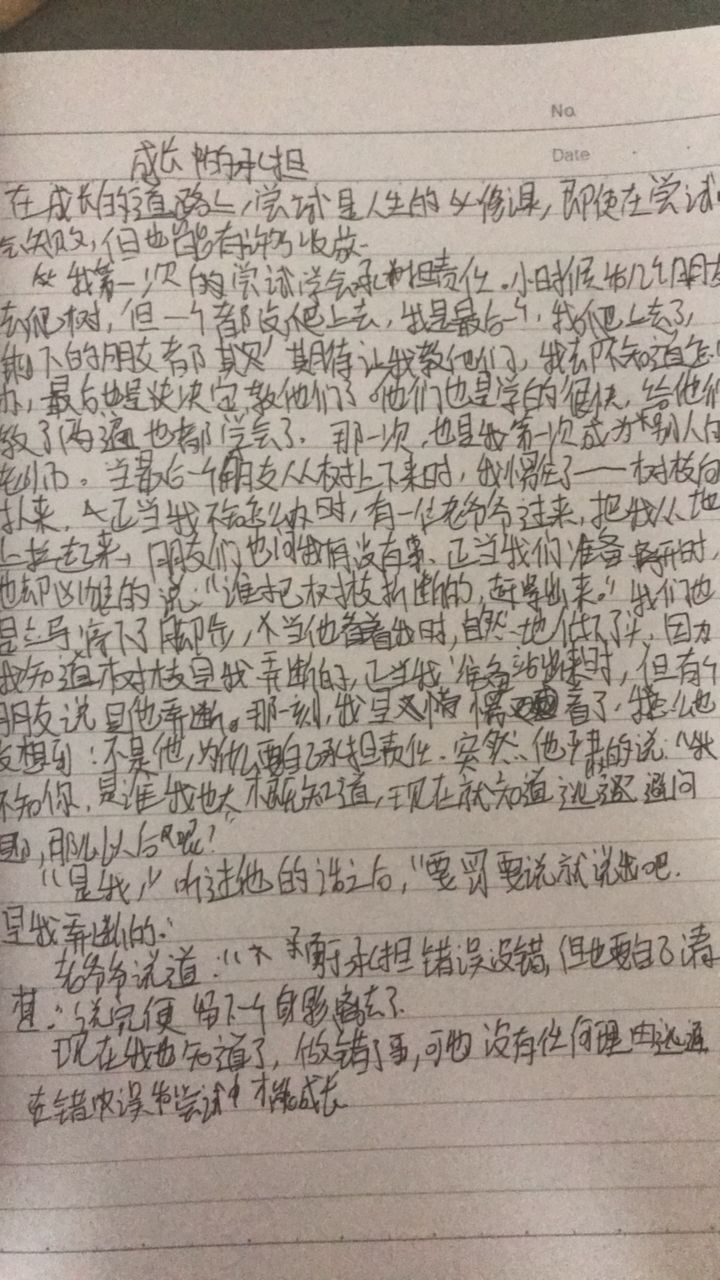 No.
Date
成长中的承担
在成长的道路上,尝试是人生的必修课,即使在尝试
会失败,但也能有许多收获.
从我第一次的尝试学会承担责任。小时候和几个朋友
去爬树,但一个都没爬上去,我是最后一个,我爬上去了,
剩下的朋友都期待让我教他们,我却不知道怎
办,最后也是决定教他们了。他们也是学的很快,给他们
教了两遍也都学会了.那一次,也是我第一次成为别人的
老师。当最后一个朋友从树上下来时,我愣住了——树枝向
扑来.正当我不知怎么办时,有一位老爷爷过来,把我从地
上拉起来,朋友们也问我有没有事.正当我们准备离开时,
他却凶狠的说:“谁把树枝折断的,赶紧出来。”我们也
是立马停下了脚步,当他看着我时,自然地低下了头,因为
我知道树枝是我弄断的,正当我准备站出来时,但有个
朋友说是他弄断。那一刻,我是愣着了,我怎么也
没想到:不是他,为什么要自己承担责任.突然,他的说:“我
不知你,是谁我也大知道,现在就知道逃避问
题,那么以后呢?”
“是我,”听过他的话之后,“要罚要说就说我吧.
是我弄断的.”
老爷爷说道:“承担错误没错,但也要自己清
楚.”说完便留下一个身影离去了.
现在我也知道了,做错了事,可也没有任何理由逃避
在错误和尝试中才能成长